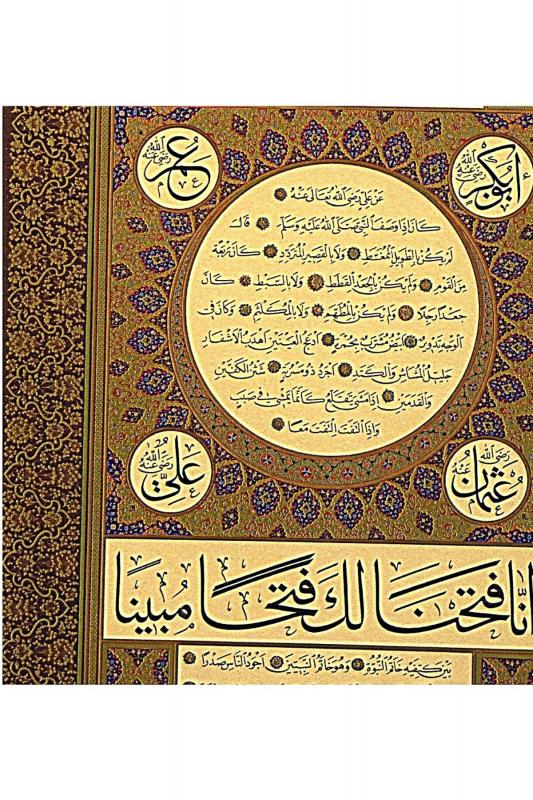 أبوبكر رضي الله عنه
عمر رضي الله عنه
عن علي رضي الله تعالى عنه
كان اذا وصف النبي صلى الله عليه وسلم قال
لم يكن بالطويل الممغط ولا بالقصير المتردد كان ربعة
من القوم ولم يكن بالجعد القطط ولا بالسبط كان
جعدا رجلا ولم يكن بالمطهم ولا بالمكلثم وكان في
الوجه تدوير ابيض مشرب بحمرة ادعج العينين اهدب الاشفار
جليل المشاش والكتد اجرد ذو مسربة شثن الكفين
والقدمين اذا مشى تقلع كانما يمشي في صبب
واذا التفت التفت معا
عثمان رضي الله عنه
علي رضي الله عنه
انا فتحنا لك فتحا مبينا
بين كتفيه خاتم النبوة وهو خاتم النبيين اجود الناس صدرا